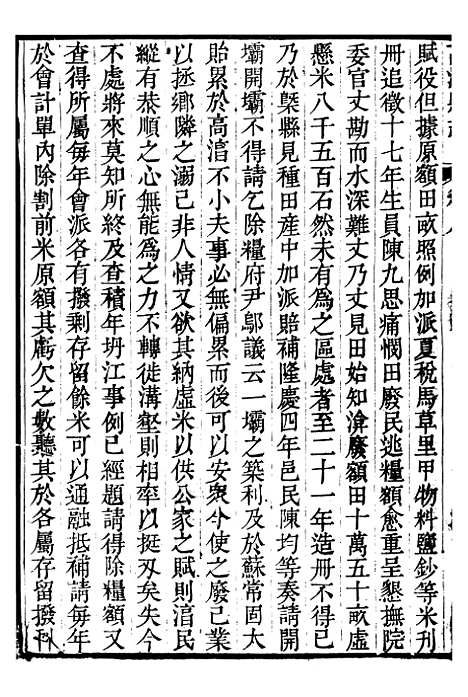 賦役但據原額田畝照例加派夏稅馬草里甲物料鹽鈔等米刊
冊追徵十七年生員陳九思痛憫田廢民逃糧額愈重呈懇撫院
委官丈勘而水深難丈乃丈見田始知渰廢額田十萬五十畝虛
懸米八千五百石然未有為之區處者至二十一年造冊不得已
乃於槩縣見種田産中加派賠補隆慶四年邑民陳均等奏請開
壩開壩不得請乞除糧府尹鄔議云一壩之築利及於蘇常固大
貽累於高湻不小夫事必無偏累而後可以安衆今使之廢己業
以拯鄉隣之溺己非人情又欲其納虛米以供公家之賦則湻民
縱有恭順之心無能為之力不轉徙溝壑則相率以挺刄矣失今
不處將來莫知所終及查積年坍江事例已經題請得除糧額又
查得所屬每年會派各有撥剩存留餘米可以通融抵補請每年
於會計單內除割前米原額其虧欠之數聽其於各屬存留撥剩